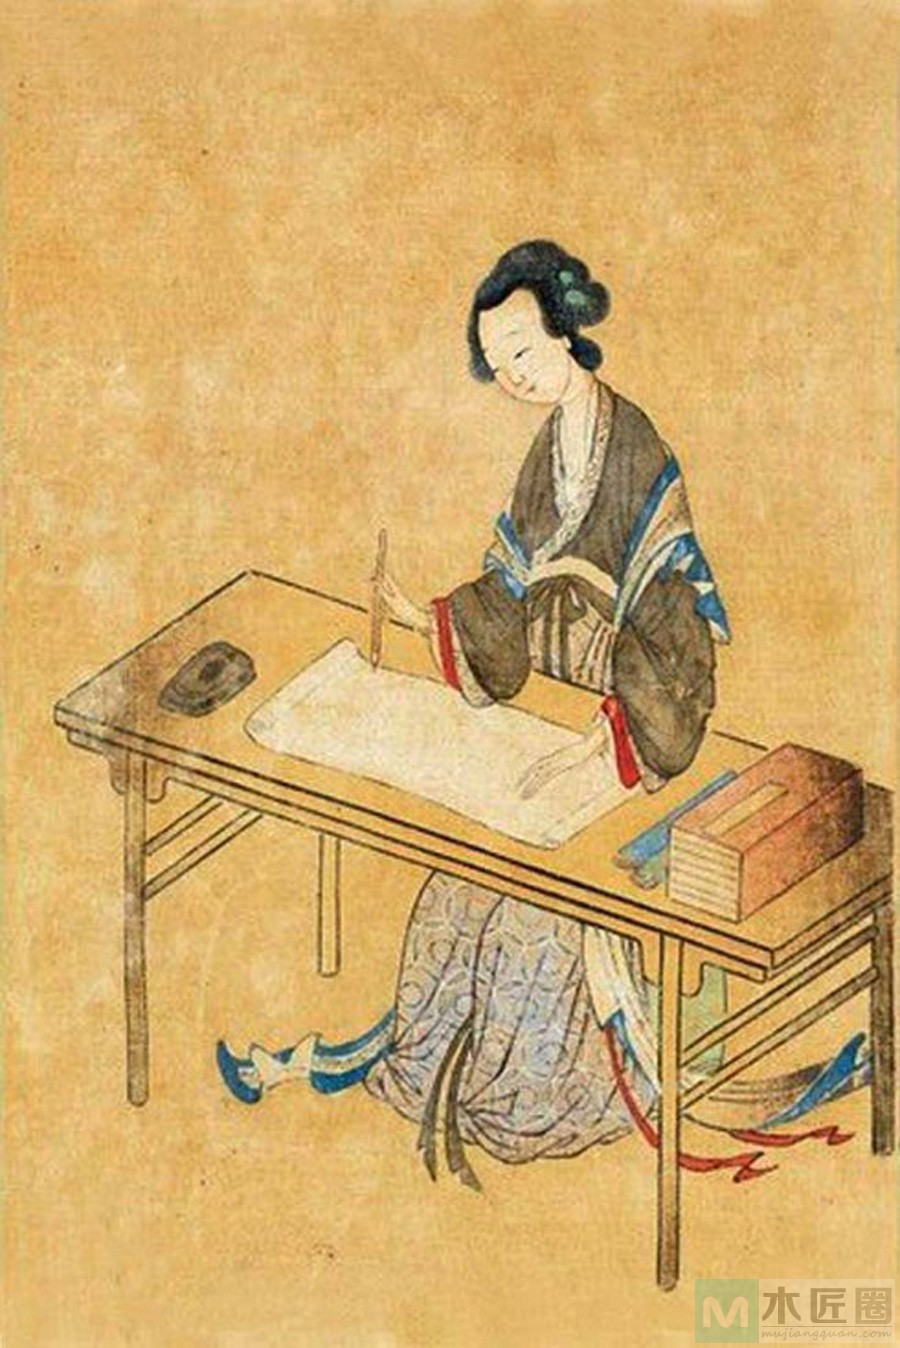 M 木匠圈
mujiangquan.com